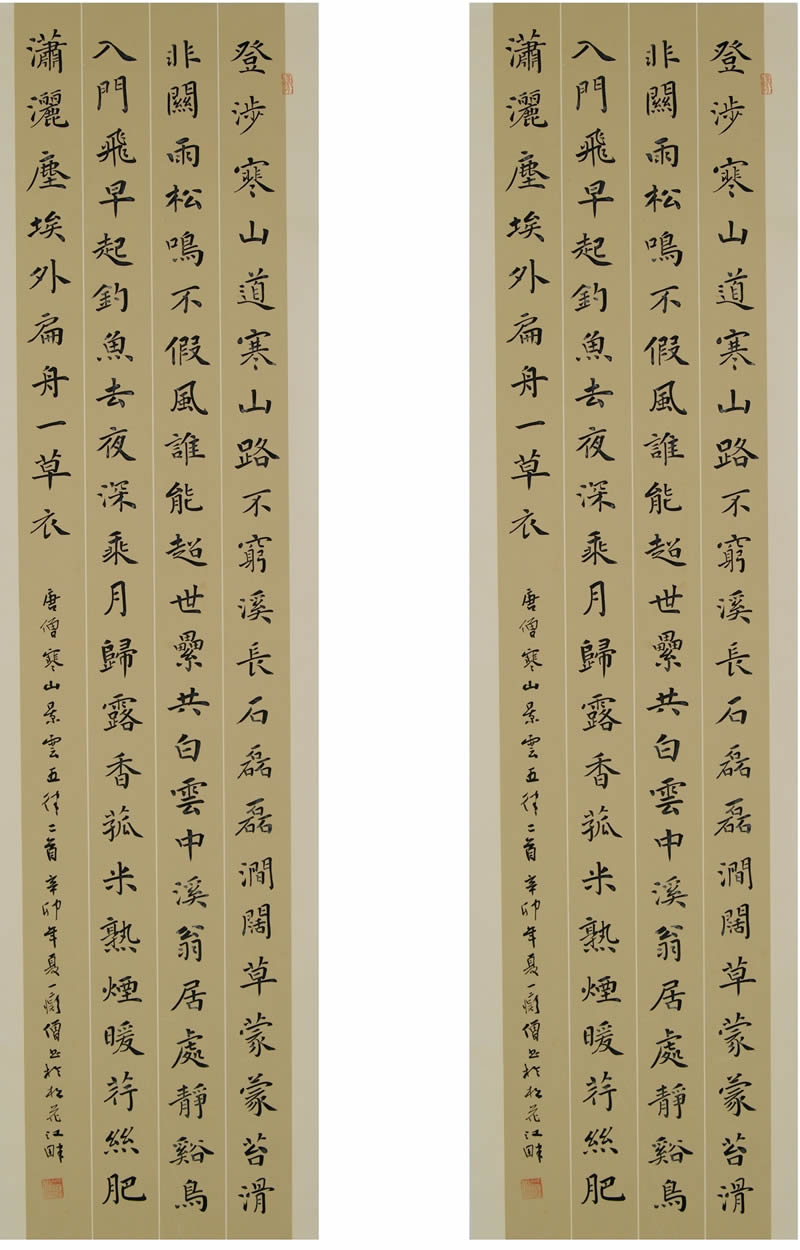 登涉寒山道寒山路不窮溪長石磊磊澗闊草蒙蒙苔滑
非關雨松鳴不假風誰能超世纍共白雲中溪翁居處靜谿鳥
入門飛早起釣魚去夜深乘月歸露香菰米熟煙暖荇絲肥
瀟灑塵埃外扁舟一草衣
唐僧寒山景雲五律二首辛卯年夏一癡僧書於松花江畔
登涉寒山道寒山路不窮溪長石磊磊澗闊草蒙蒙苔滑
非關雨松鳴不假風誰能超世纍共白雲中溪翁居處靜谿鳥
入門飛早起釣魚去夜深乘月歸露香菰米熟煙暖荇絲肥
瀟灑塵埃外扁舟一草衣
唐僧寒山景雲五律二首辛卯年夏一癡僧書於松花江畔